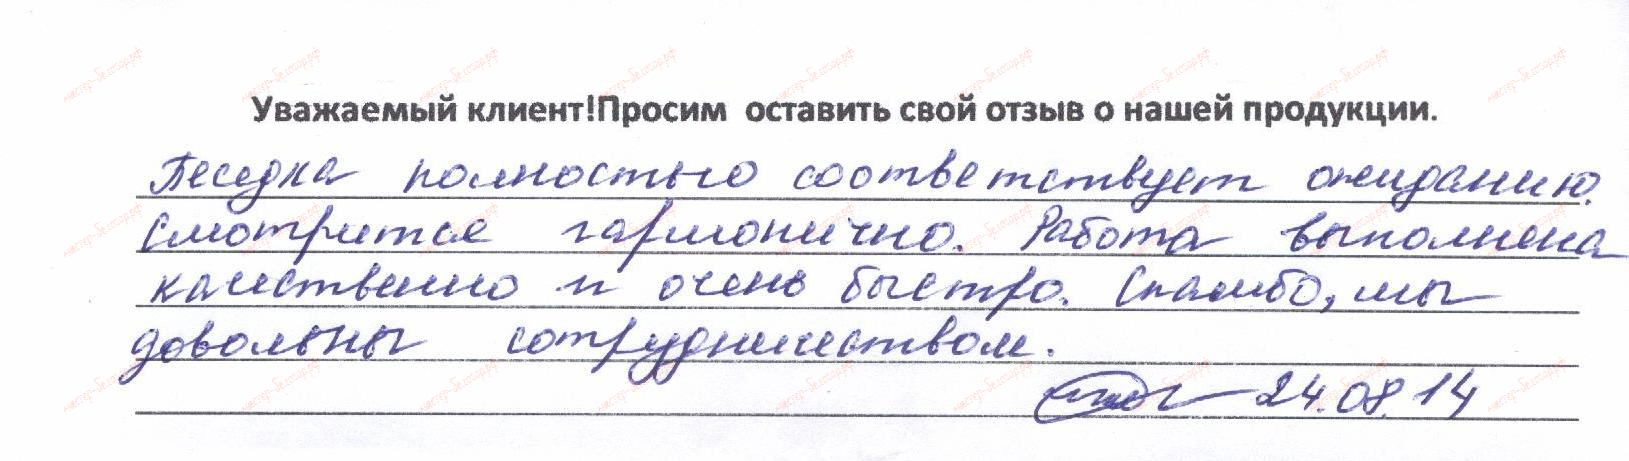 Уважаемый клиент!Просим оставить свой отзыв о нашей продукции.
Беседка полностью соответствует ожиданию.
Смотрится гармонично. Работа выполнена
качественно и очень быстро. Спасибо, мы
довольны сотрудничеством.
24.08.14